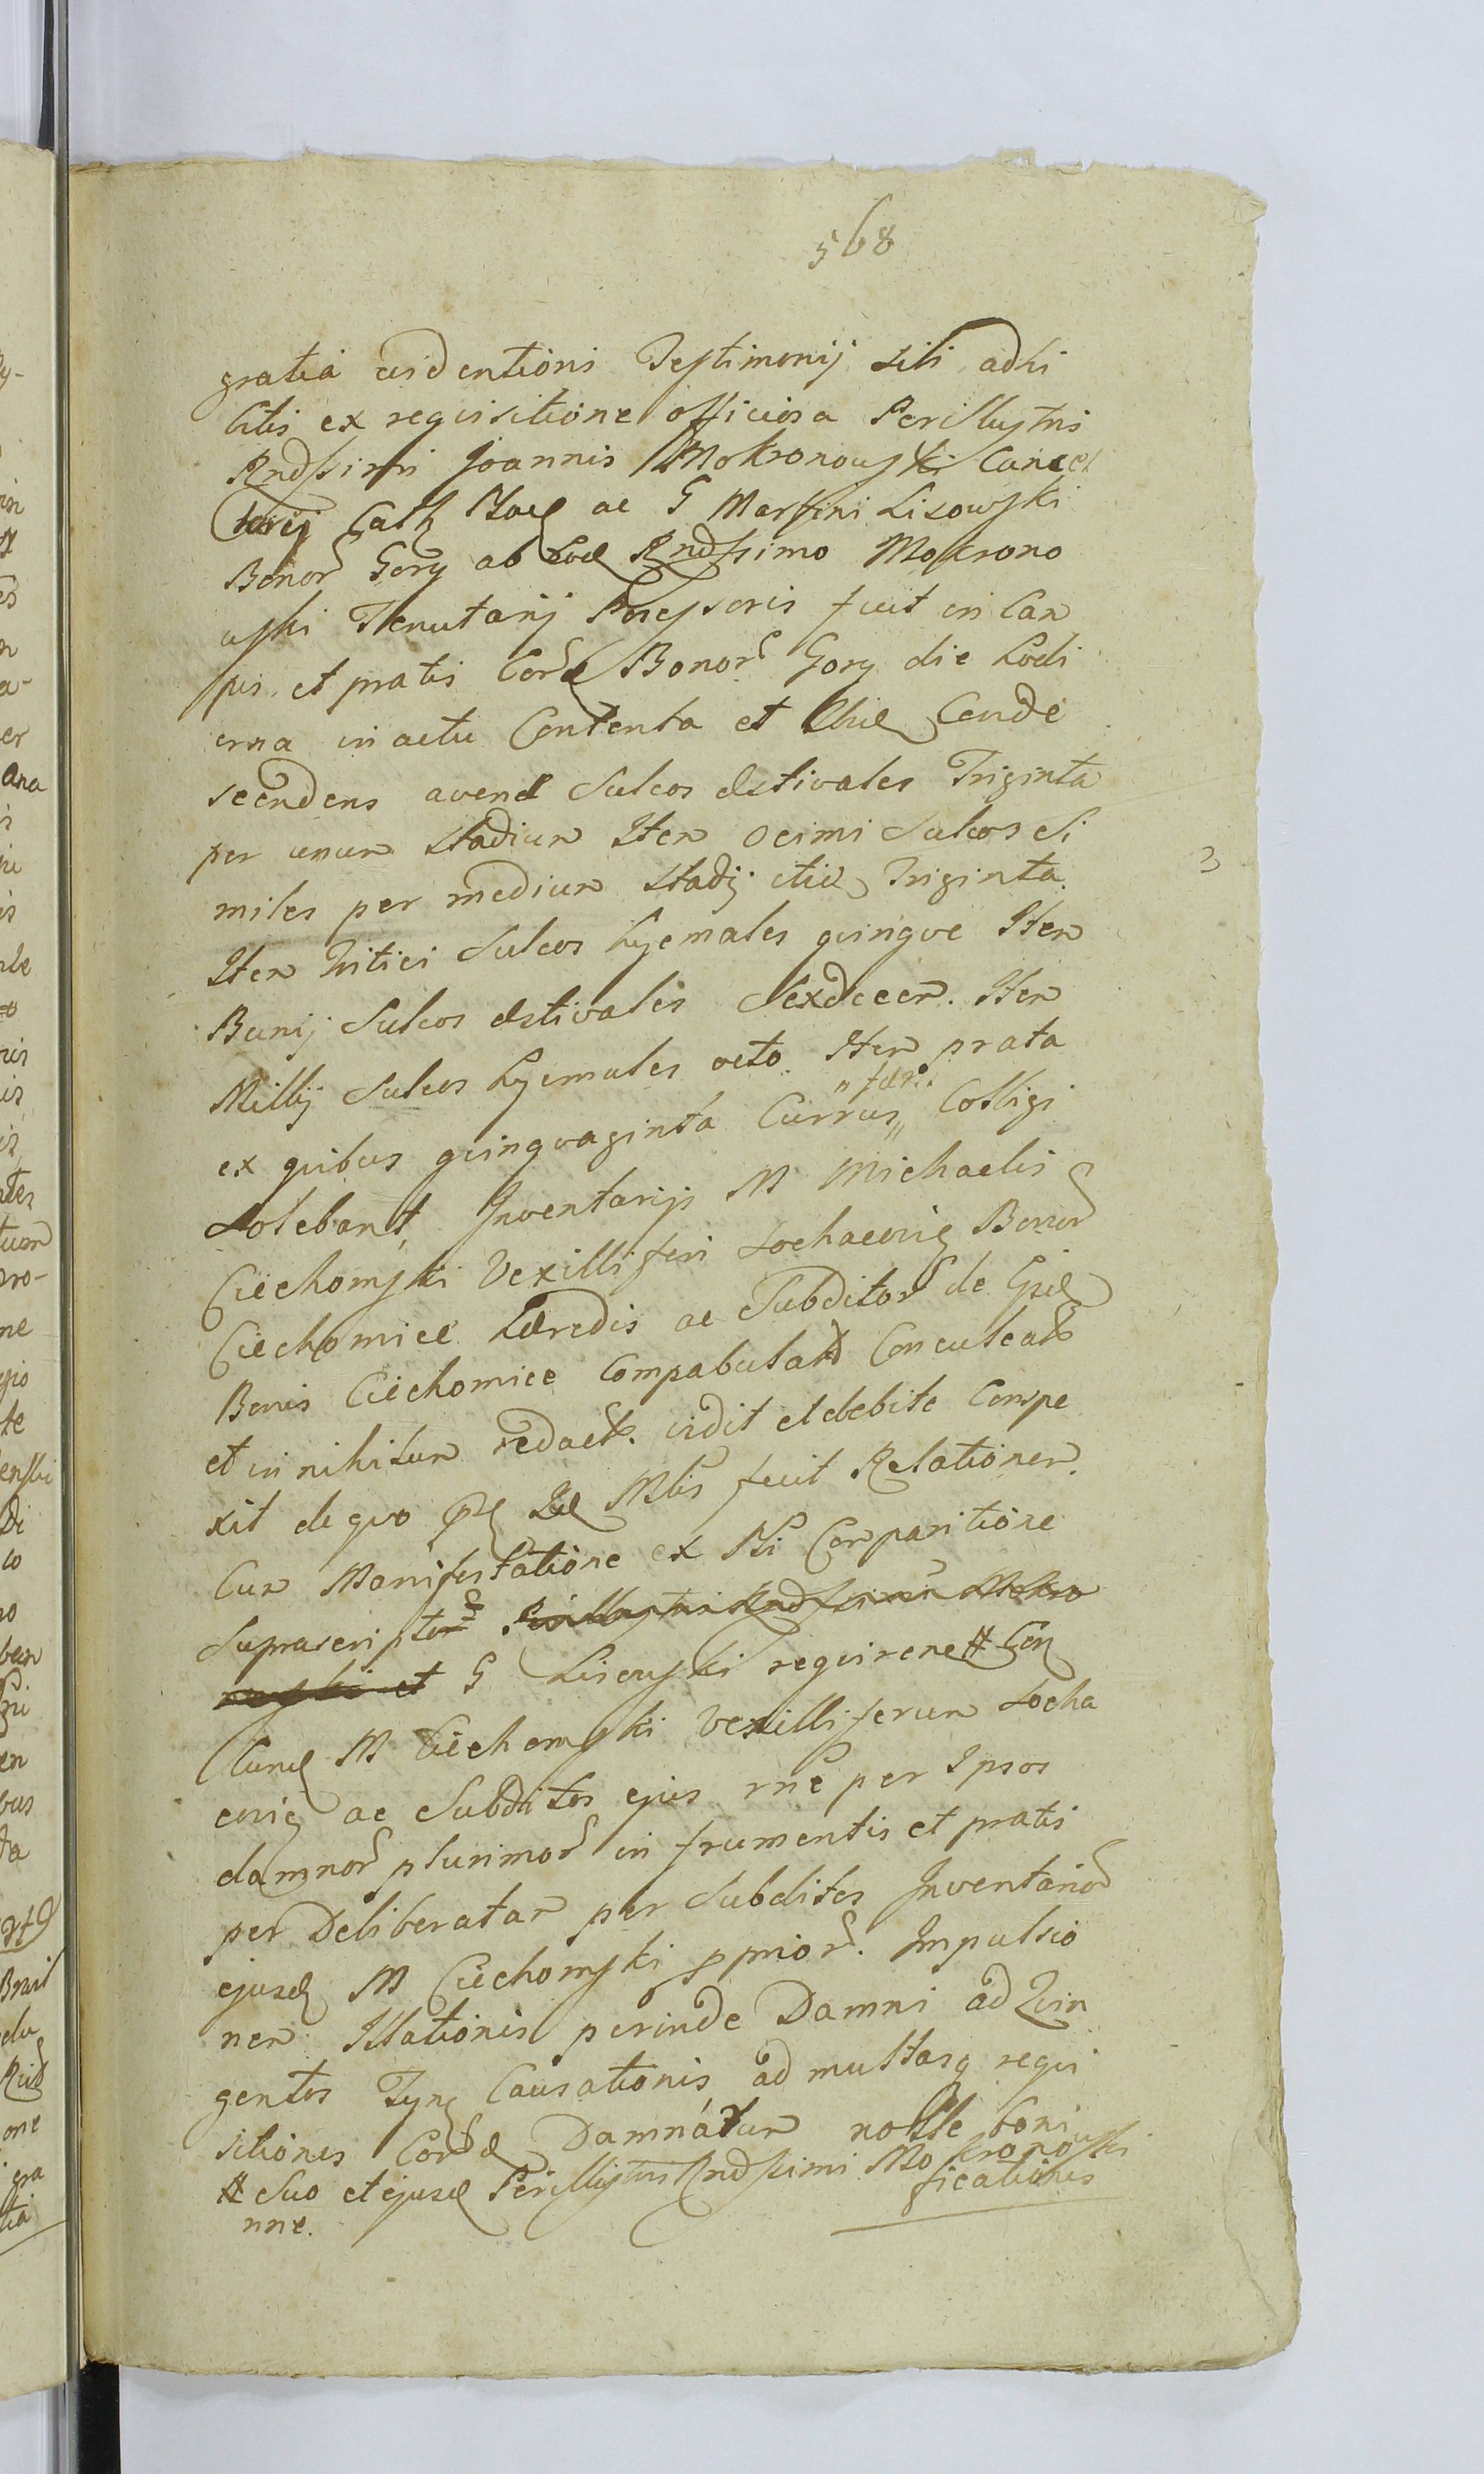 568
gratia evidentioris Testimonij sibi adhi
bitis ex requisitione officiosa Perillustris
Rndssimi Joannis Mokronowski Cancel
larij Cath Ploc ac G Martini Lisowski
Bonor Gory ab Eod Rndssimo Mokrono
wski Tenutarij Possessoris fuit in Cam
pis et pratis Cord Bonor Gory die hodi
erna in actu Contenta et Ibid Conde
scendens avenæ Sulcos æstivales Triginta
per unum Stadium Item ocimi Sulcos Si
miles per medium Stadij itid Triginta
Item Tritici Sulcos hyemales quinque Item
Bunij Sulcos æstivales Sexdecem. Item
Millij Sulcos hyemales octo. Item prata
ex quibus quinquaginta Currus „ fæni „ Colligi
Solebant, Inventarijs M Michaelis
Ciechomski Vexilliferi Sochacevie Bonor
Ciechomice Hæredis ac Subditor de Gsd
Bonis Ciechomice Compabulat Conculcat
et in nihilum redact. vidit et debite Conspe
xit de quo Idem Mlis fecit Relationem.
Cum Manifestatione ex Nri Comparitione
Suprascriptor Perillustris Rndssimi Mokro
nowski et G Lisowski requirene # Con
Cund M Ciechomski Vexilliferum Socha
cevie ac Subditos ejus rne per Ipsos
damnor plurimor in frumentis et pratis
per Deliberatam per Subditos Inventarior
ejusd M Ciechomski pprior. Impulsio
nem Illationis perinde Damni ad Quin
gentos Tynf Causationis ad multasq requi
sitiones Cord Damnatur nolle boni
ficationis
# Suo et ejusd Perillustris Rndssimi Mokronowski
nne.